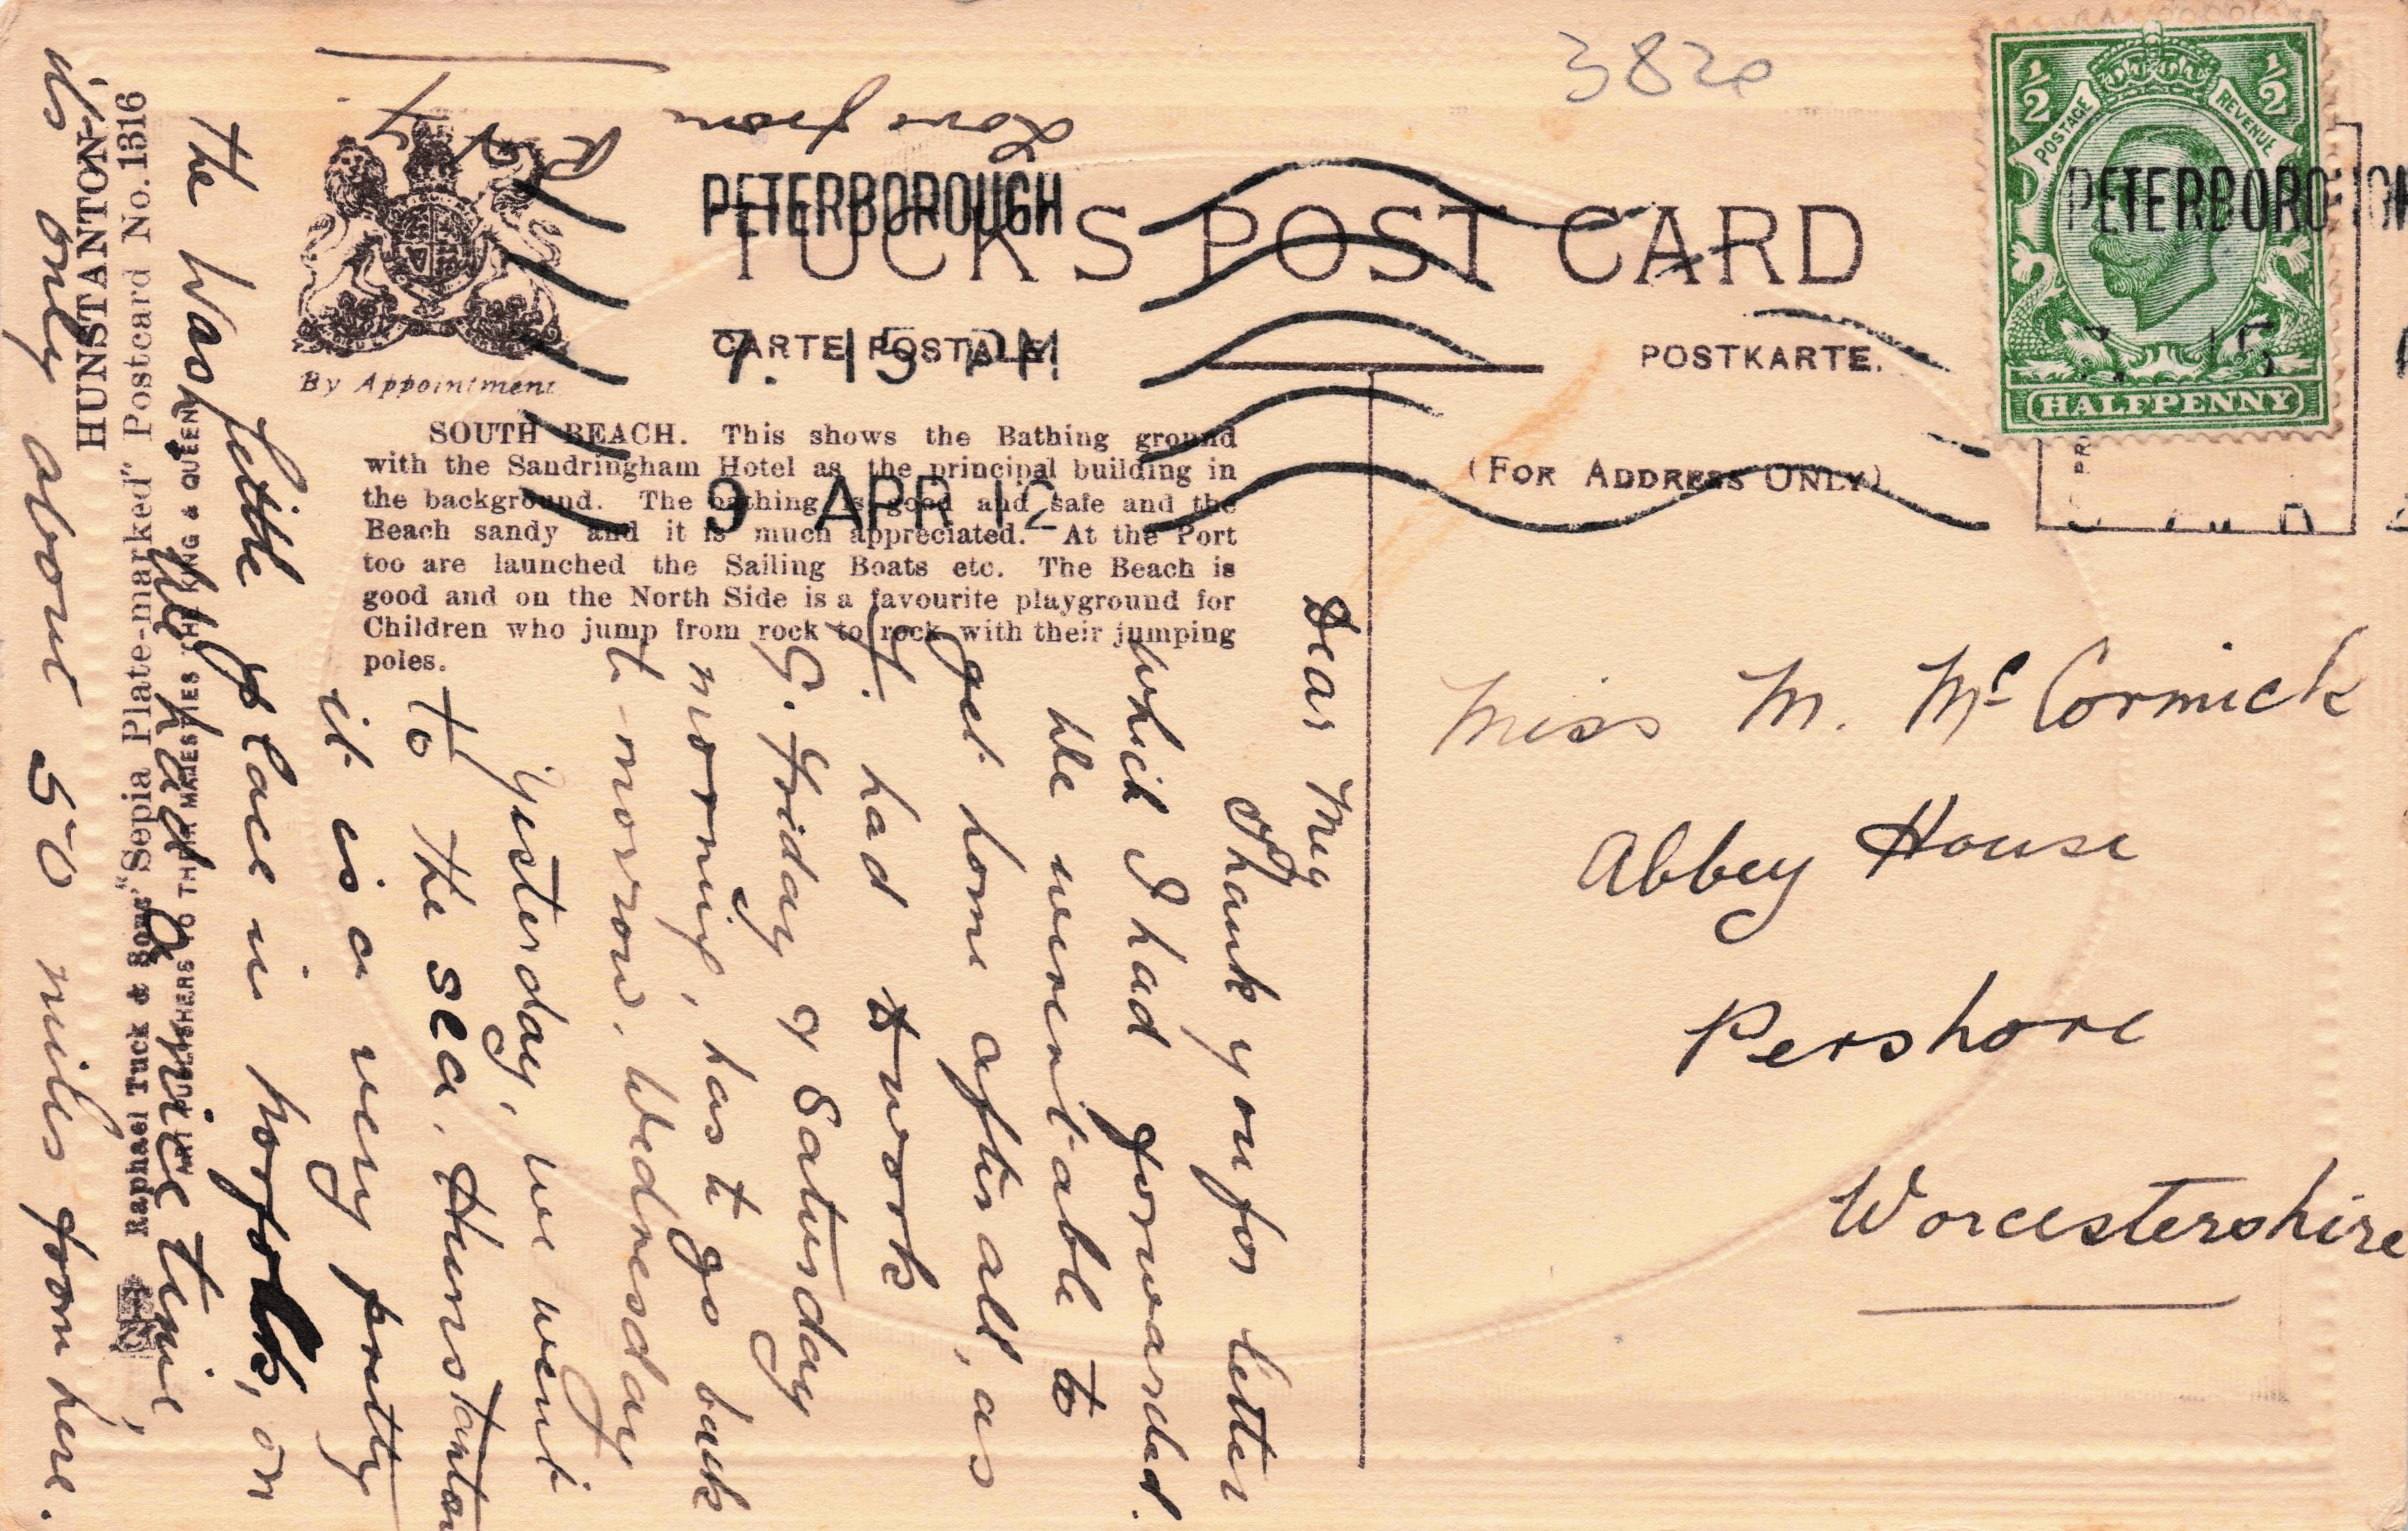 3820
POSTAGE
REVENUE
1/2
1/2
HALFPENNY
PETERBOROUGH
7. 15 PM
9 APR 12
PETERBOROUGH
TUCK'S POST CARD
CARTE POSTALE.
POSTKARTE.
(FOR ADDRESS ONLY)
By Appointment
SOUTH BEACH. This shows the Bathing ground
with the Sandringham Hotel as the principal building in
the background. The bathing is good and safe and the
Beach sandy and it is much appreciated. At the Port
too are launched the Sailing Boats etc. The Beach is
good and on the North Side is a favourite playground for
Children who jump from rock to rock with their jumping
poles.
HUNSTANTON,
Raphael Tuck & Sons' "Sepia Plate-marked" Postcard No. 1316
ART PUBLISHERS TO THEIR MAJESTIES THE KING & QUEEN
Miss M. McCormick
Abbey House
Pershore
Worcestershire
Dear Meg
Thank you for letter
which I had forwarded.
We weren't able to
get home after all, as
H. had to work
G. Friday & Saturday
morning, has t go back
t-morrow, Wednesday
Yesterday, we went
to the sea, Hunstanton
it is a very pretty
little place in Norfolk, on
the Wash
We had a nice time,
its only about 50 miles from here.
Love from